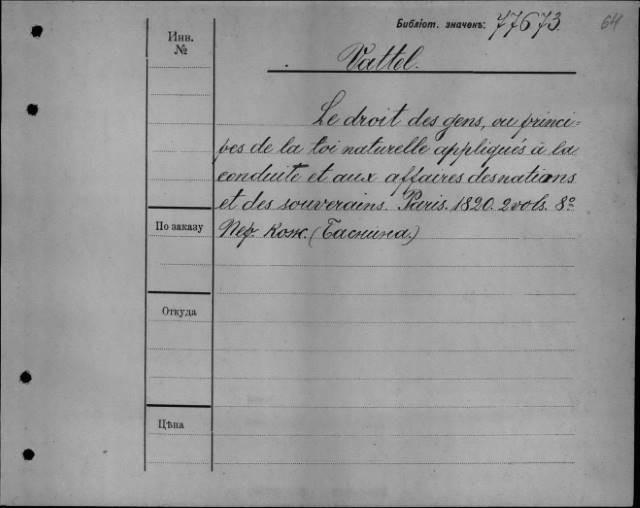 Библіот. значекъ: 77673. 64
Инв. №
Vattel.
Le droit des gens, ou princi=
pes de la loi naturelle appliqués à la
conduite et aux affaires des nations
et des souverains. Paris. 1820. 2 vols. 8º
По заказу
Пер. кож. (Баснина.)
Откуда
Цѣна